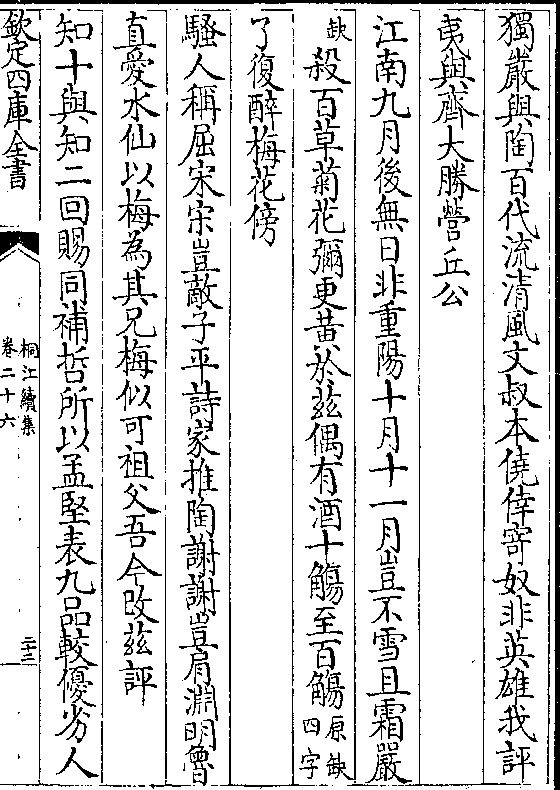 獨嚴與陶百代流清風文叔本僥倖寄奴非英雄我評
夷與齊大勝營丘公
江南九月後無日非重陽十月十一月豈不雪且霜嚴
缺殺百草菊花彌更黃於兹偶有酒十觴至百觴原缺四字
了復醉梅花傍
騷人稱屈宋宋豈敵子平詩家推陶謝謝豈肩淵明魯
直愛水仙以梅為其兄梅似可祖父吾今改兹評
知十與知二回賜同補哲所以孟堅表九品較優劣人
欽定四庫全書
桐江續集
卷二十六
二十三